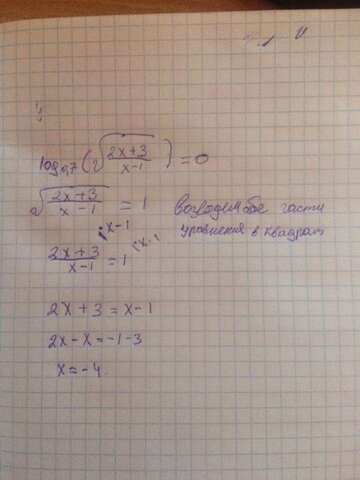 log₀,₇(²√((2x+3)/(x-1))) = 0
²√((2x+3)/(x-1)) = 1 возводим обе части
уравнения в квадрат
(2x+3)/(x-1) = 1 |·x-1 |·x-1
2x+3 = x-1
2x-x = -1-3
x = -4.